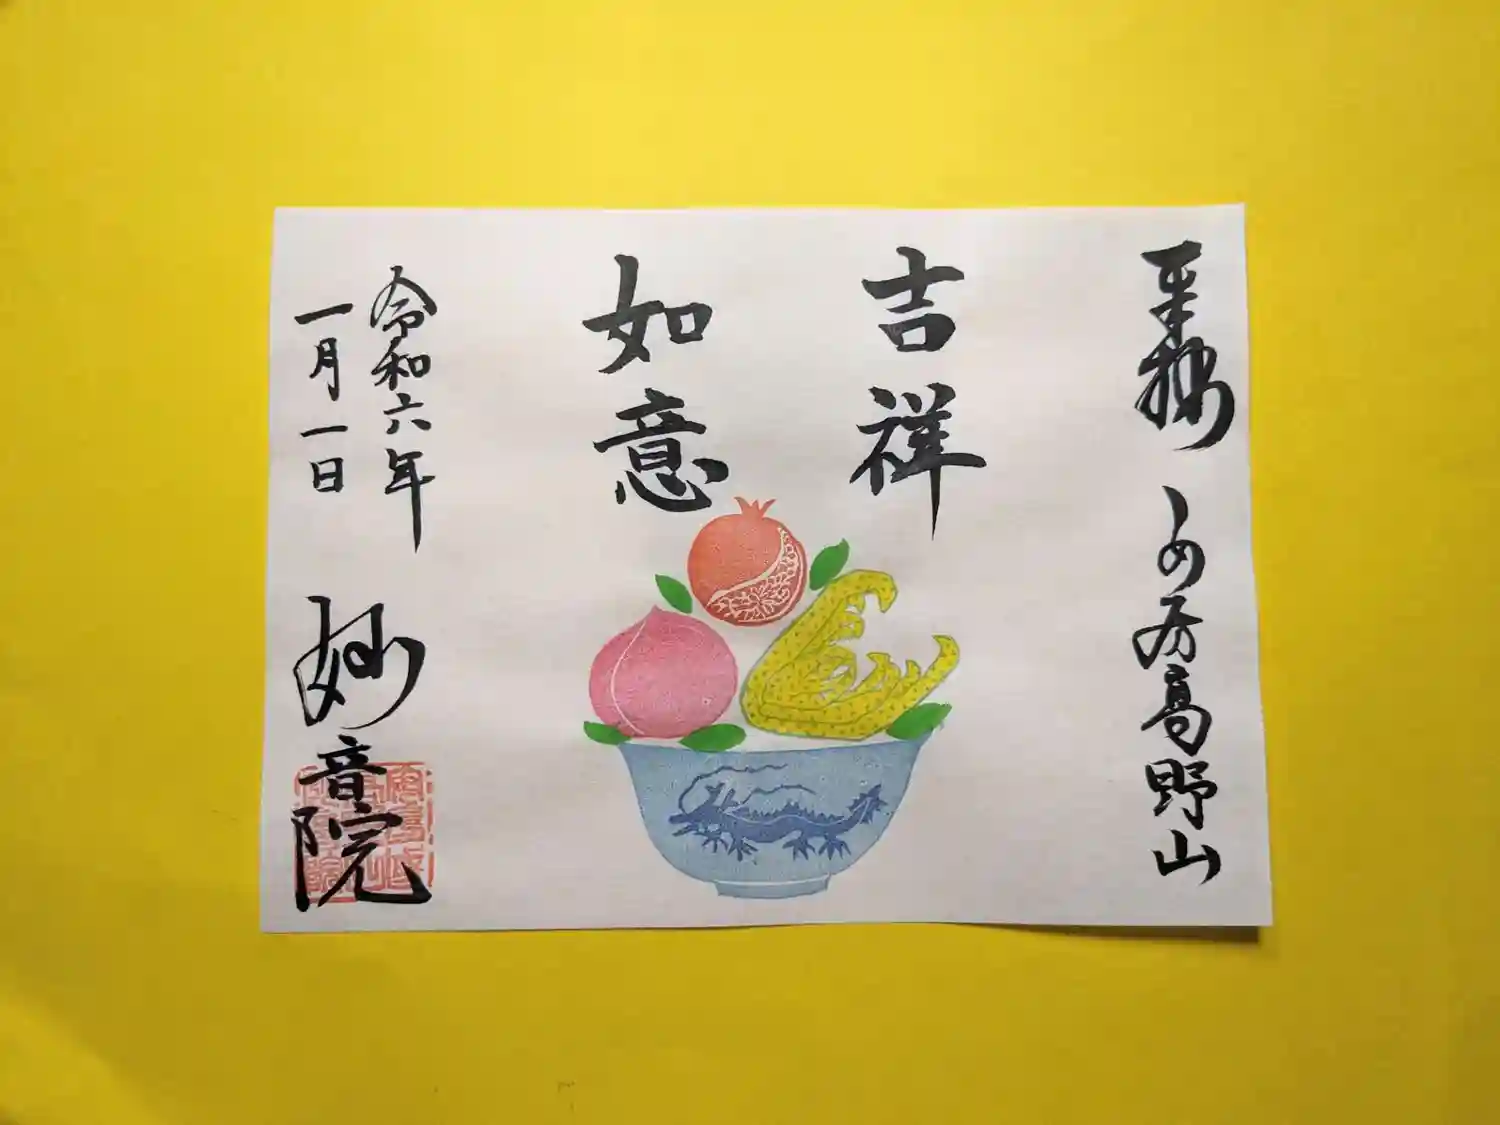 奉拝 安房高野山
吉祥
如意
令和六年
一月一日
妙音院